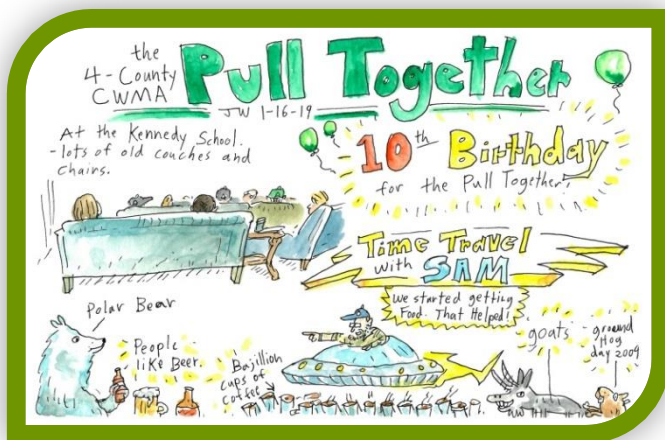 the
4-County
CWMA
Pull Together
JW 1-16-19
At the Kennedy School.
-lots of old couches and
chairs.
10th Birthday
for the Pull Together!
Time Travel
with SAM
We started getting
Food. That Helped!
Polar Bear
People
like Beer.
Bajillion
cups of
coffee
goats
ground
Hog
day 2009